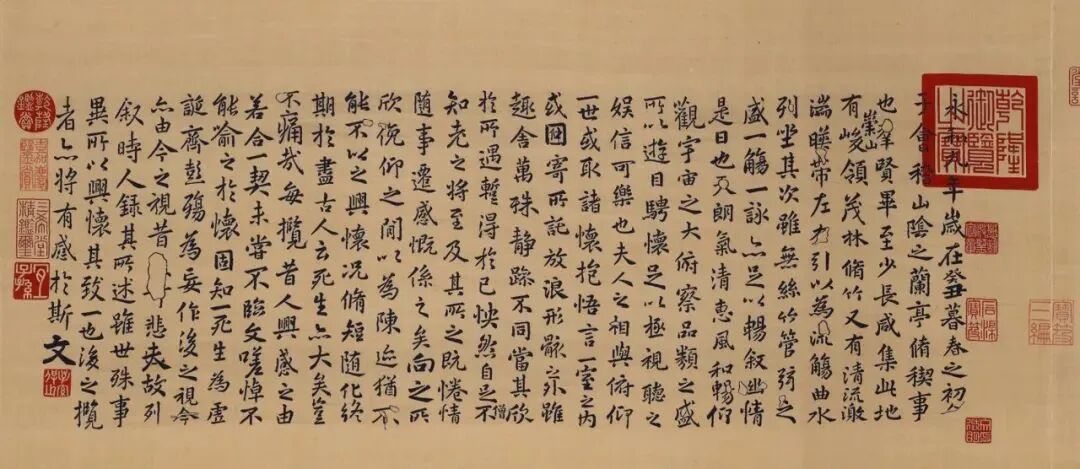 永和九年歲在癸丑暮春之初會
于會稽山陰之蘭亭脩稧事
也羣賢畢至少長咸集此地
有崇山峻領茂林脩竹又有清流激
湍暎帶左右引以為流觴曲水
列坐其次雖無絲竹管弦之
盛一觴一詠亦足以暢敘幽情
是日也天朗氣清惠風和暢仰
觀宇宙之大俯察品類之盛
所以遊目騁懷足以極視聽之
娛信可樂也夫人之相與俯仰
一世或取諸懷抱悟言一室之內
或因寄所託放浪形骸之外雖
趣舍萬殊靜躁不同當其欣
於所遇蹔得於己怏然自足不
僧
知老之將至及其所之既惓情
隨事遷感慨係之矣向之所
欣俛仰之間以為陳迹猶不
能不以之興懷況脩短隨化終
期於盡古人云死生亦大矣豈
不痛哉每攬昔人興感之由
若合一契未嘗不臨文嗟悼不
能喻之於懷固知一死生為虛
誕齊彭殤為妄作後之視今
亦由今之視昔悲夫故列
敘時人錄其所述雖世殊事
異所以興懷其致一也後之攬
者亦將有感於斯文
乾隆御覽之寶
石渠寶笈
寶笈三編
乾隆鑑賞
三希堂精鑑璽
宜子孫